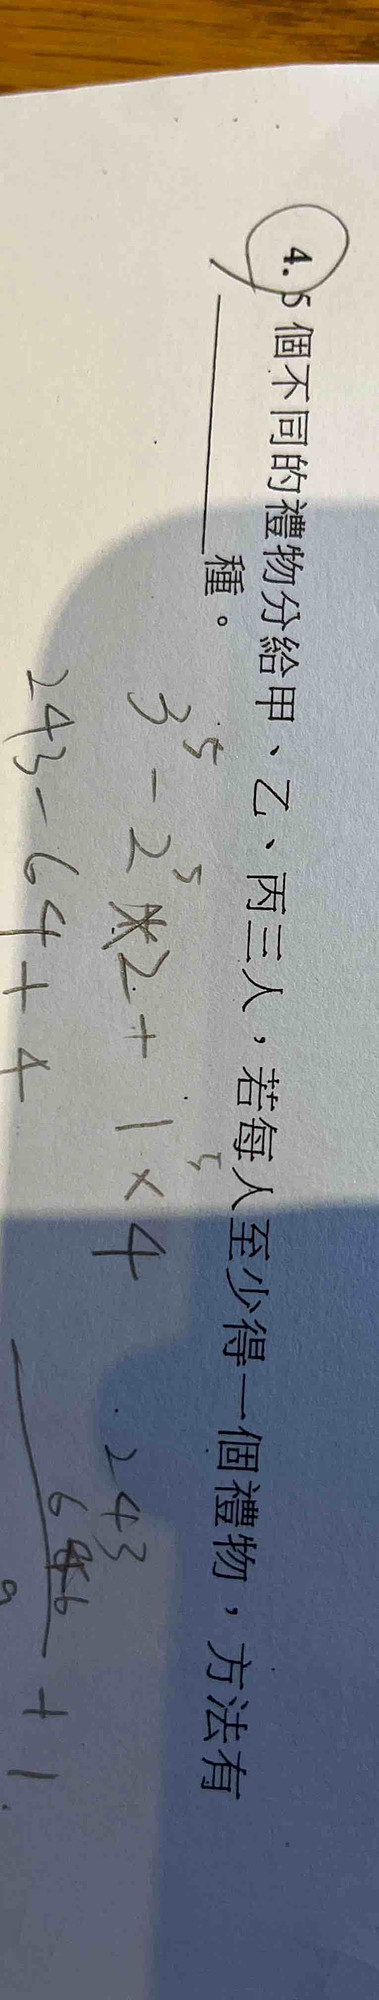 4. 5 個不同的禮物分給甲、乙、丙三人，若每人至少得一個禮物，方法有
______種。
3⁵ - 2⁵ × 2 + 1⁵ × 4
243 - 64 + 4
243
+ 1